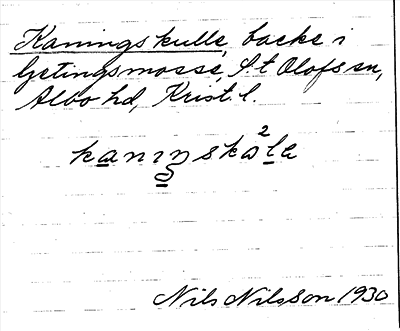 Kaningskulle, backe i
Getingsmosse, S:t Olofs sn,
Albo hd, Krist. l.
Nils Nilsson 1930